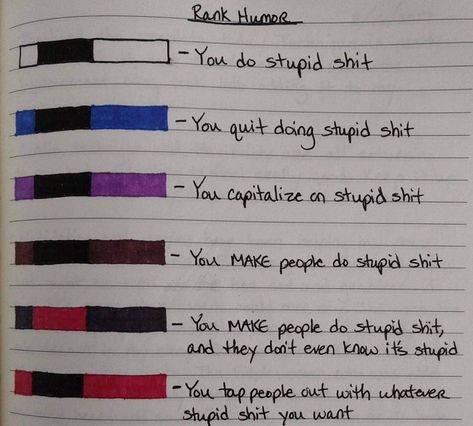 Rank Humor
- You do stupid shit
- You quit doing stupid shit
- You capitalize on stupid shit
- You MAKE people do stupid shit
- You MAKE people do stupid shit,
and they don't even know it's stupid
- You tap people out with whatever
stupid shit you want